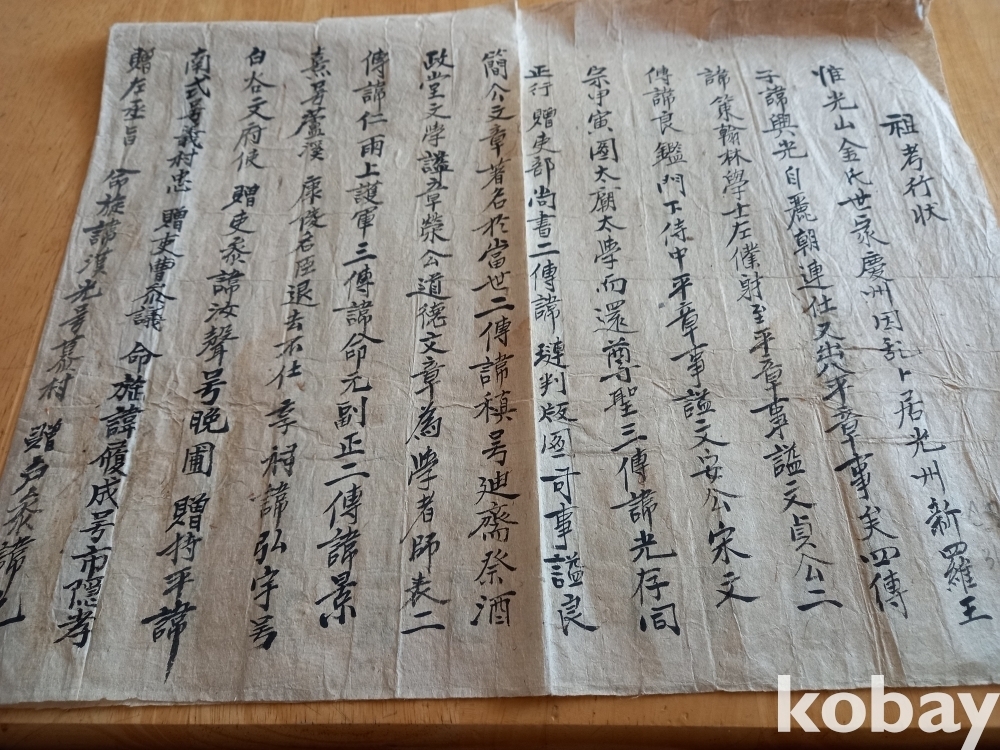 祖考行狀
惟光山金氏世家慶州因乱卜居光州新羅王
子諱興光自麗朝連仕又出八平章事矣四傳
諱策翰林學士左僕射至平章事謚文貞公二
傳諱良鑑門下侍中平章事謚文安公宋文
宗甲寅圖太廟太學而還尊聖三傳諱光存同
正行贈吏部尚書二傳諱璉判版啚司事謚良
簡公文章著名於當世二傳諱稹号廸齋祭酒
政堂文學謚章榮公道德文章為學者師表二
傳諱仁雨上護軍三傳諱命元副正二傳諱景
熹号蘆溪康陵名臣退去不仕享祠諱弘宇号
白谷文府使贈吏叅諱汝聲号晚圃贈持平諱
南式号義村忠贈吏曹叅議命旌諱履成号市隱孝
贈左丞旨命旌諱漢光号慕村贈戶叅諱
kobay